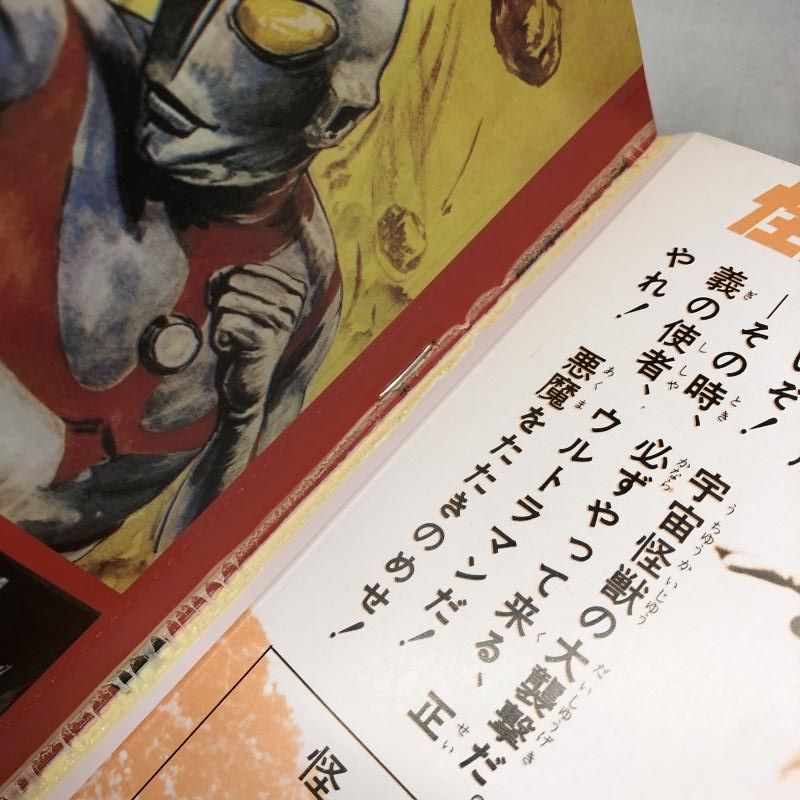 怪
いぞ！ 宇宙怪獣の大襲撃だ。
―その時、必ずやって来る、正
義の使者、ウルトラマンだ！
やれ！ 悪魔をたたきのめせ！
怪